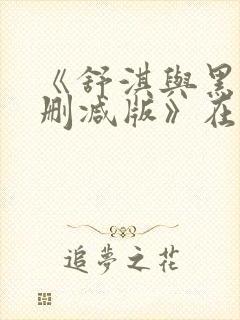 《舒淇與黑
删减版》在
追夢之花